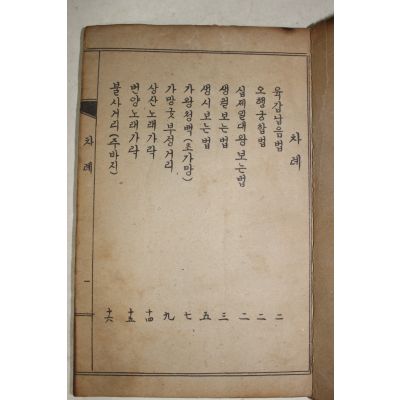 차례
육갑납음법 二
오행궁합법 二
십제일대왕보는법 二
생월보는법 三
생시보는법 五
가왕청백(초가망) 七
가망굿부정거리 九
상산노래가락 十四
번양노래가락 十五
불사거리(주바지) 十六
차례
一